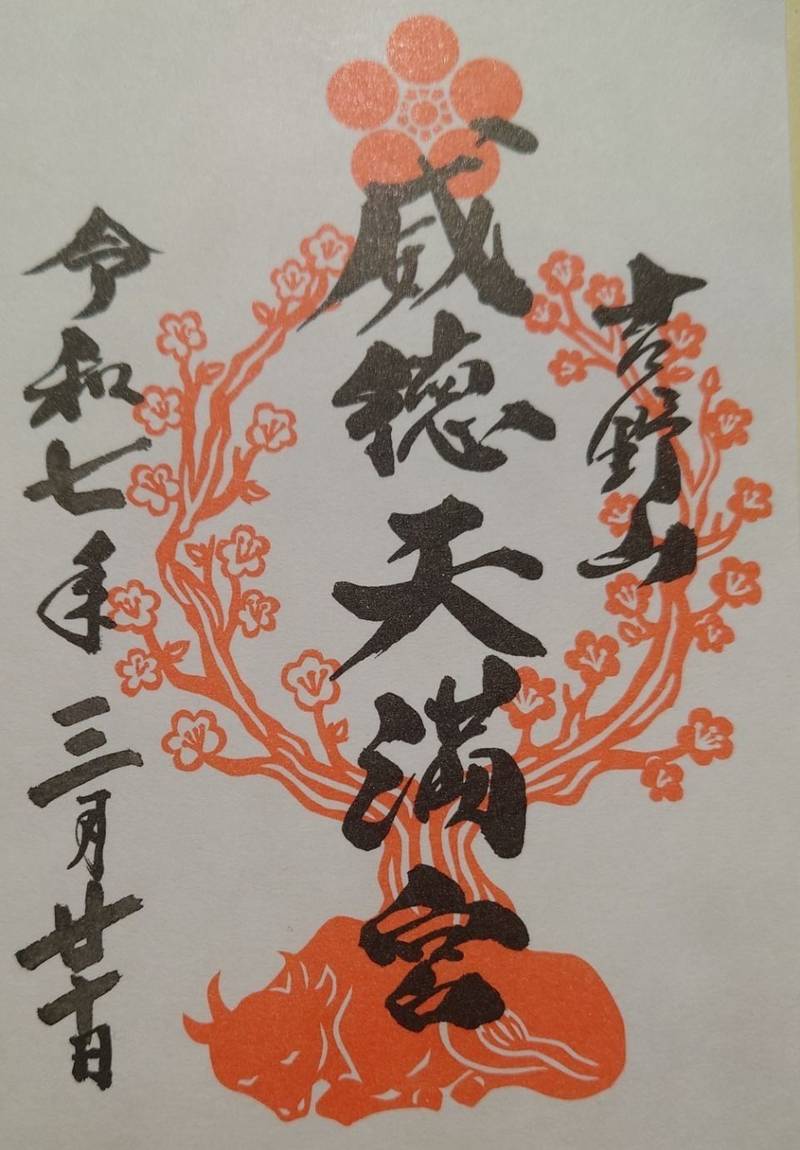 吉野山
威徳天満宮
令和七年三月廿十日